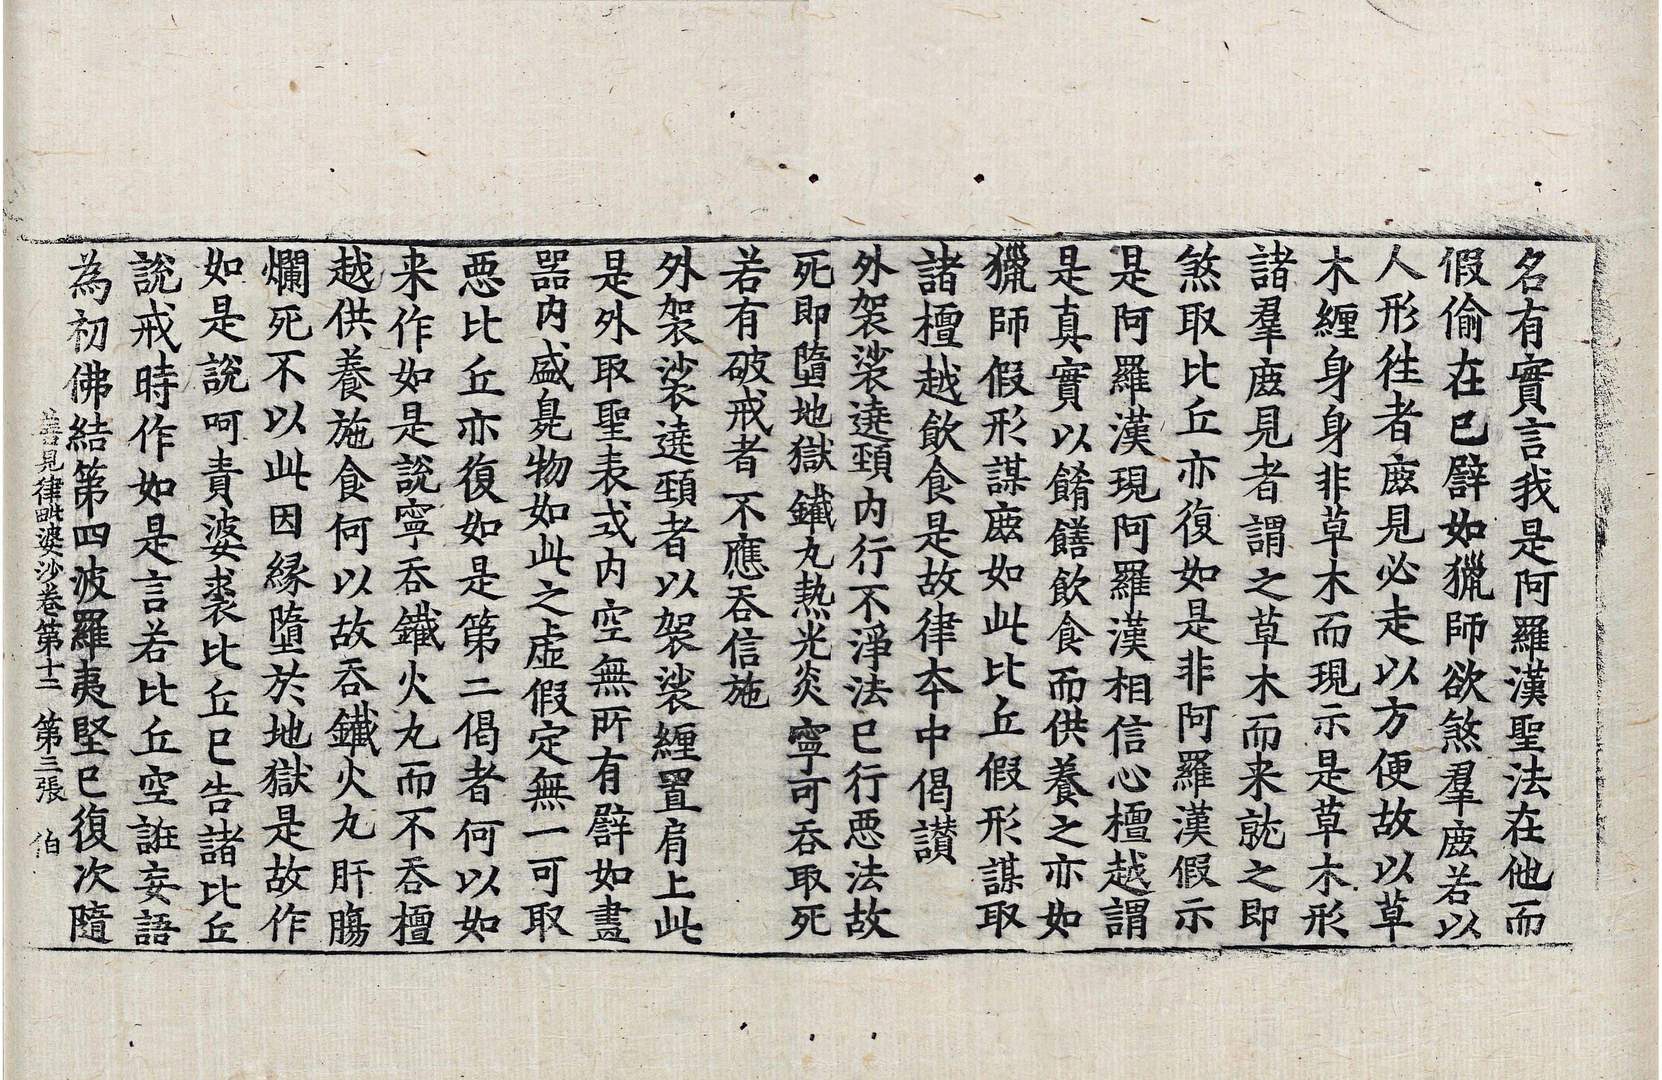 名有實言我是阿羅漢聖法在他而
假偷在已譬如獵師欲煞羣鹿若以
人形往者鹿見必走以方便故以草
木纏身身非草木而現示是草木形
諸羣鹿見者謂之草木而来就之即
煞取比丘亦復如是非阿羅漢假示
是阿羅漢現阿羅漢相信心檀越謂
是真實以餚饍飲食而供養之亦如
獵師假形謀鹿如此比丘假形謀取
諸檀越飲食是故律本中偈讃
外袈裟遶頸内行不淨法已行惡法故
死即墮地獄鐵丸熱光炎寧可吞取死
若有破戒者不應吞信施
外袈裟遶頸者以袈裟纏置肩上此
是外取聖表或内空無所有譬如畫
器内盛臭物如此之虛假定無一可取
惡比丘亦復如是第二偈者何以如
来作如是說寧吞鐵火丸而不吞檀
越供養施食何以故吞鐵火丸肝膓
爛死不以此因緣墮於地獄是故作
如是說呵責婆裘比丘已告諸比丘
說戒時作如是言若比丘空誑妄語
為初佛結第四波羅夷堅已復次隨
善見律毗婆沙卷第十二 第三張 伯